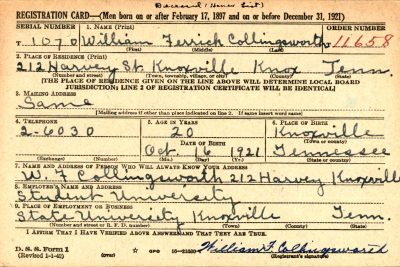 REGISTRATION CARD—(Men born on or after February 17, 1897 and on or before December 31, 1921)
SERIAL NUMBER 1. NAME (Print) ORDER NUMBER
T 1070 William Ferrick Collingsworth 11658
(First) (Middle) (Last)
2. PLACE OF RESIDENCE (Print)
212 Harvey St. Knoxville Knox Tenn.
(Number and street) (Town, township, village, or city) (County) (State)
[THE PLACE OF RESIDENCE GIVEN ON THE LINE ABOVE WILL DETERMINE LOCAL BOARD
JURISDICTION; LINE 2 OF REGISTRATION CERTIFICATE WILL BE IDENTICAL]
3. MAILING ADDRESS
Same
(Mailing address if other than place indicated on line 2. If same insert word same)
4. TELEPHONE 5. AGE IN YEARS 6. PLACE OF BIRTH
2-6030 20 Knoxville
DATE OF BIRTH (Town or county)
Oct. 16 1921 Tennessee
(Exchange) (Number) (Mo.) (Day) (Yr.) (State or country)
7. NAME AND ADDRESS OF PERSON WHO WILL ALWAYS KNOW YOUR ADDRESS
W. F Collingsworth 212 Harvey Knoxville
8. EMPLOYER'S NAME AND ADDRESS
Student University
9. PLACE OF EMPLOYMENT OR BUSINESS
State University Knoxville Tenn.
(Number and street or R. F. D. number) (Town) (County) (State)
I AFFIRM THAT I HAVE VERIFIED ABOVE ANSWERS AND THAT THEY ARE TRUE.
D. S. S. Form 1
(Revised 1-1-42) (over) GPO William F. Collingsworth
(Registrant's signature)